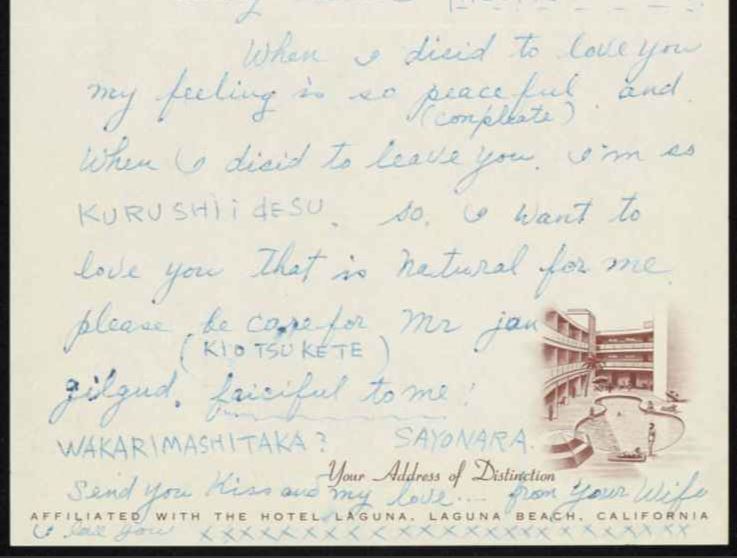 When I disid to love you
my feeling is so peaceful and
(conpleate)
When I disid to leave you. I'm so
KURUSHIi dESU. so. I want to
love you that is natural for me
please be care for Mr jon
(KIOTSUKETE)
gilgud. faiciful to me!
WAKARIMASHITAKA? SAYONARA.
Your Address of Distinction
Send you Kiss and my love.... from your Wife
AFFILIATED WITH THE HOTEL LAGUNA, LAGUNA BEACH, CALIFORNIA
I love you xxxxxxxxxxxxxxxxxxxxxxx